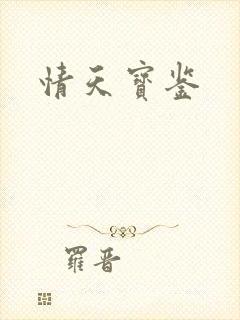 情天寳鉴
羅晋